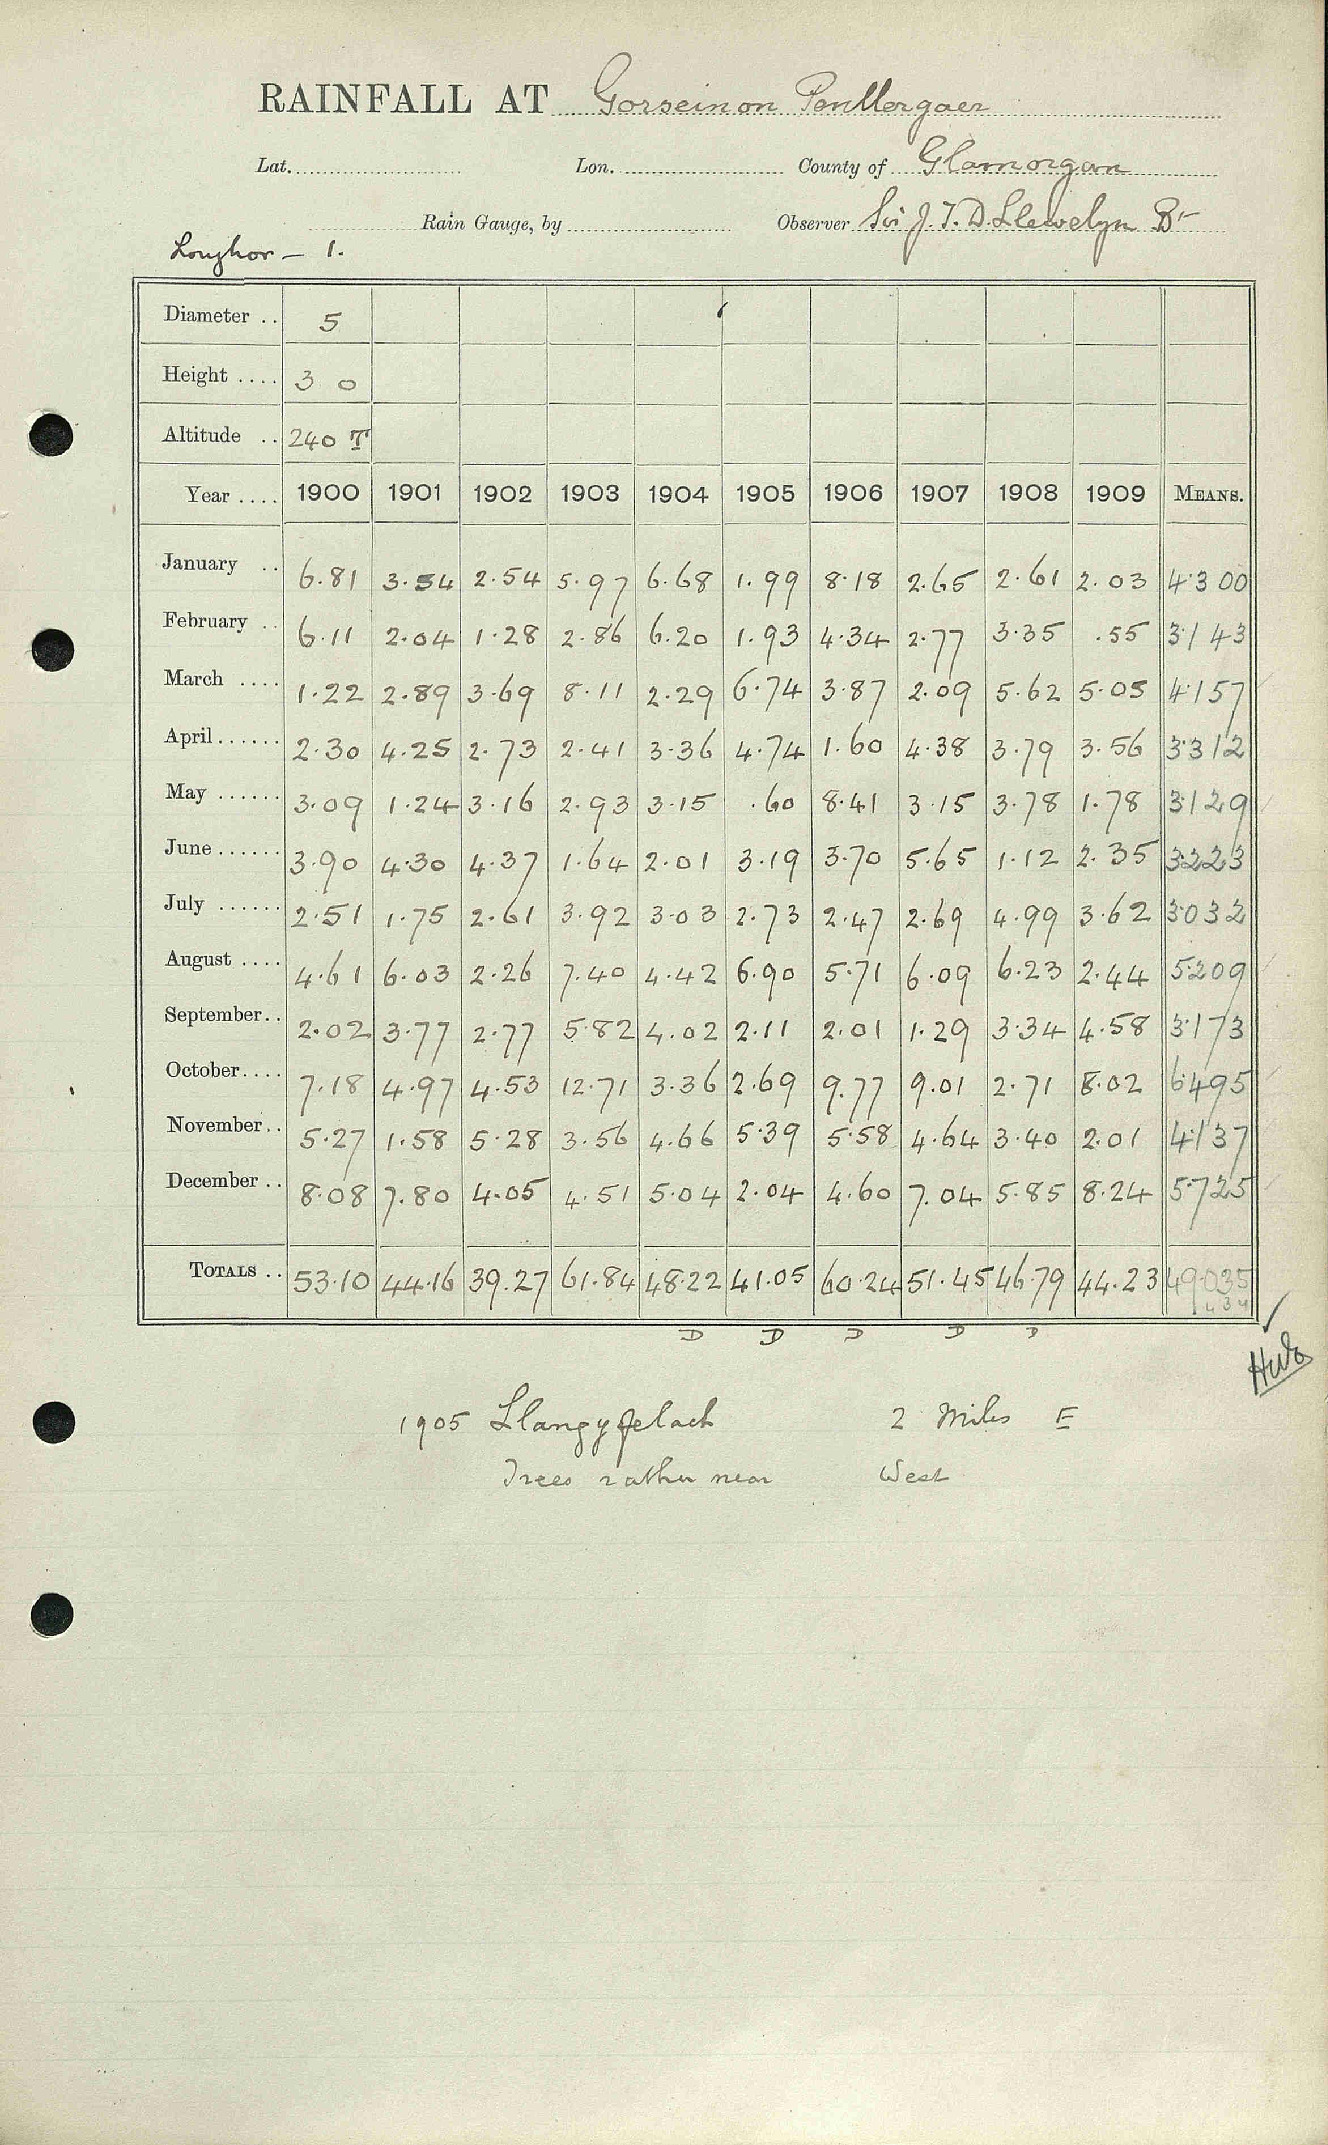 RAINFALL AT Gorseinon Penllergaer
Lat. Lon. County of Glamorgan
Rain Gauge, by Observer Sir J. T. D. Llewelyn Bt
Loughor - 1.
Diameter .. 5
Height .... 3 0
Altitude .. 240 T
Year .... 1900 1901 1902 1903 1904 1905 1906 1907 1908 1909 MEANS.
January .. 6.81 3.54 2.54 5.97 6.68 1.99 8.18 2.65 2.61 2.03 4.300
February .. 6.11 2.04 1.28 2.86 6.20 1.93 4.34 2.77 3.35 .55 3.143
March .... 1.22 2.89 3.69 8.11 2.29 6.74 3.87 2.09 5.62 5.05 4.157
April...... 2.30 4.25 2.73 2.41 3.36 4.74 1.60 4.38 3.79 3.56 3.312
May ...... 3.09 1.24 3.16 2.93 3.15 .60 8.41 3.15 3.78 1.78 3.129
June...... 3.90 4.30 4.37 1.64 2.01 3.19 3.70 5.65 1.12 2.35 3.223
July ...... 2.51 1.75 2.61 3.92 3.03 2.73 2.47 2.69 4.99 3.62 3.032
August .... 4.61 6.03 2.26 7.40 4.42 6.90 5.71 6.09 6.23 2.44 5.209
September.. 2.02 3.77 2.77 5.82 4.02 2.11 2.01 1.29 3.34 4.58 3.173
October.... 7.18 4.97 4.53 12.71 3.36 2.69 9.77 9.01 2.71 8.02 6.495
November.. 5.27 1.58 5.28 3.56 4.66 5.39 5.58 4.64 3.40 2.01 4.137
December .. 8.08 7.80 4.05 4.51 5.04 2.04 4.60 7.04 5.85 8.24 5.725
TOTALS .. 53.10 44.16 39.27 61.84 48.22 41.05 60.24 51.45 46.79 44.23 49.035
D D D D D
1905 Llangyfelach 2 Miles E
Trees rather near West